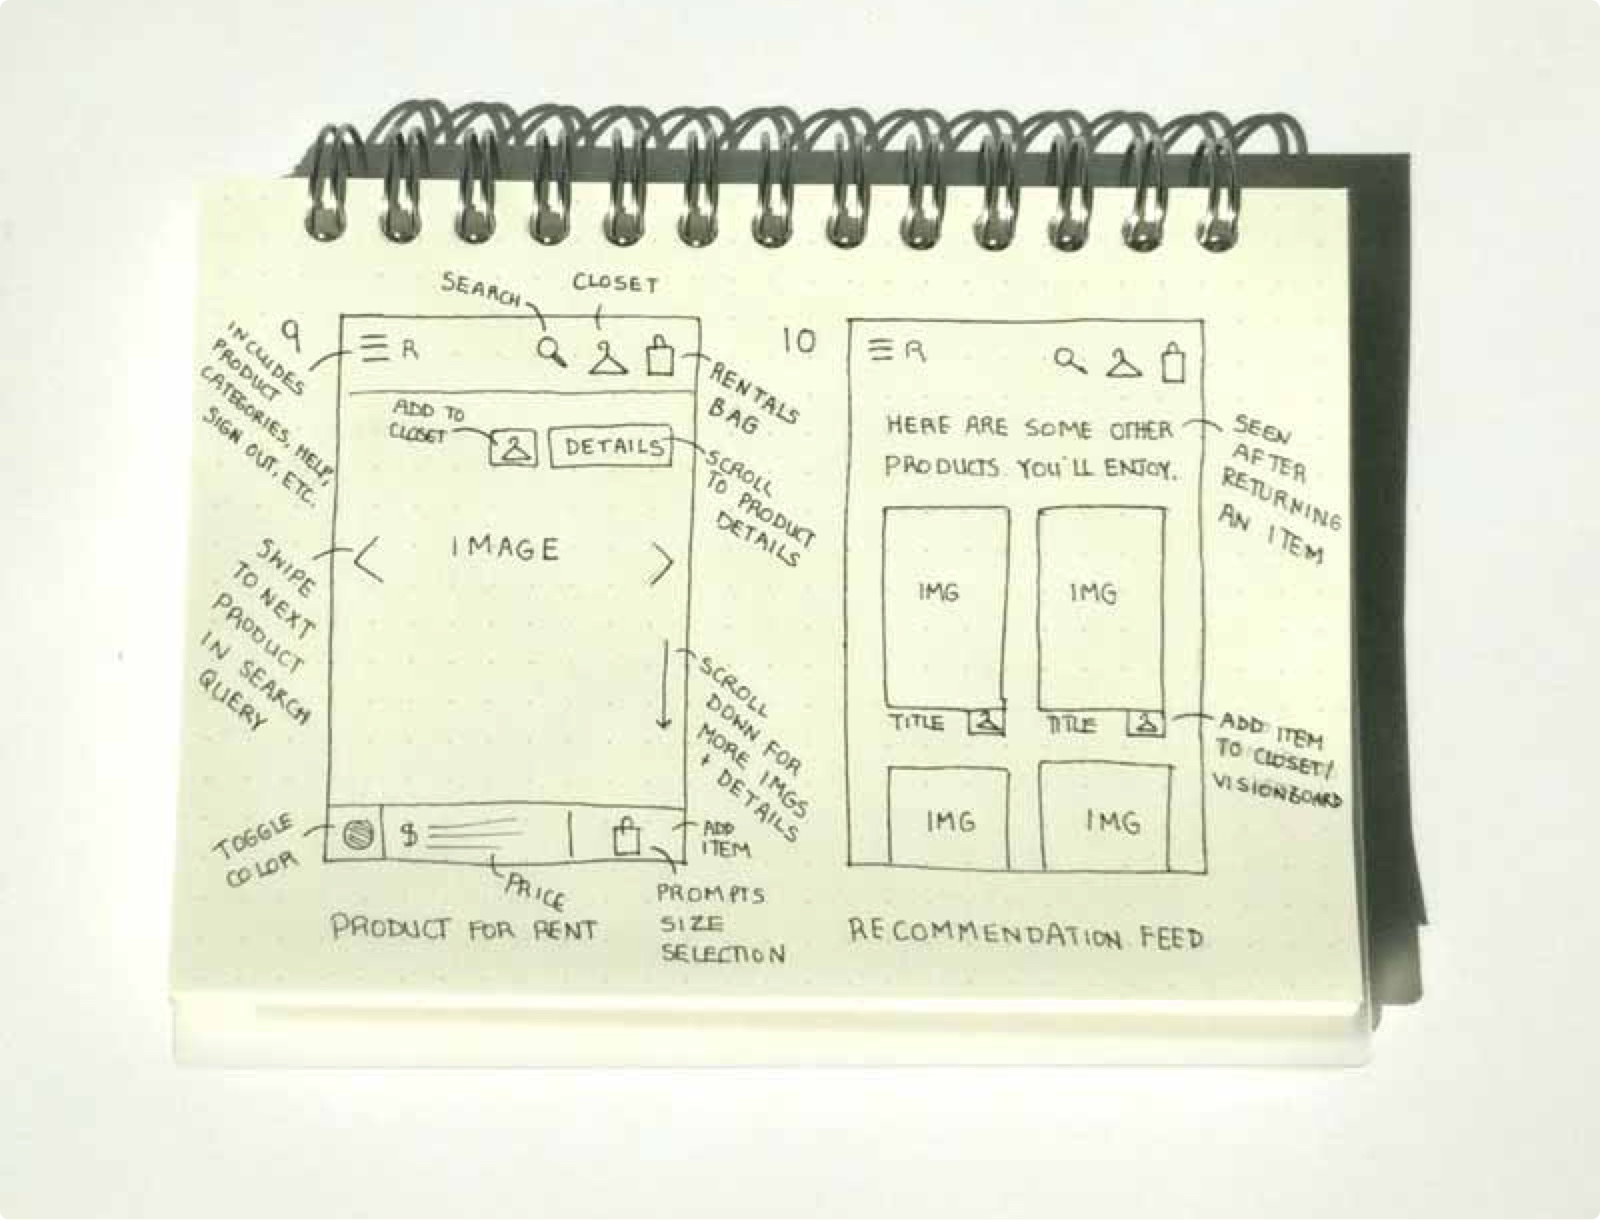 SEARCH
CLOSET
9
INCLUDES
PRODUCT
CATEGORIES, HELP,
SIGN OUT, ETC.
R
RENTALS
BAG
ADD TO
CLOSET
DETAILS
SCROLL
TO PRODUCT
DETAILS
SWIPE
TO NEXT
PRODUCT
IN SEARCH
QUERY
< IMAGE >
SCROLL
DOWN FOR
MORE IMGS
+ DETAILS
TOGGLE
COLOR
$
ADD
ITEM
PRICE
PROMPTS
SIZE
SELECTION
PRODUCT FOR RENT
10
R
HERE ARE SOME OTHER
PRODUCTS YOU'LL ENJOY.
SEEN
AFTER
RETURNING
AN ITEM
IMG IMG
TITLE TITLE
ADD ITEM
TO CLOSET/
VISIONBOARD
IMG IMG
RECOMMENDATION FEED